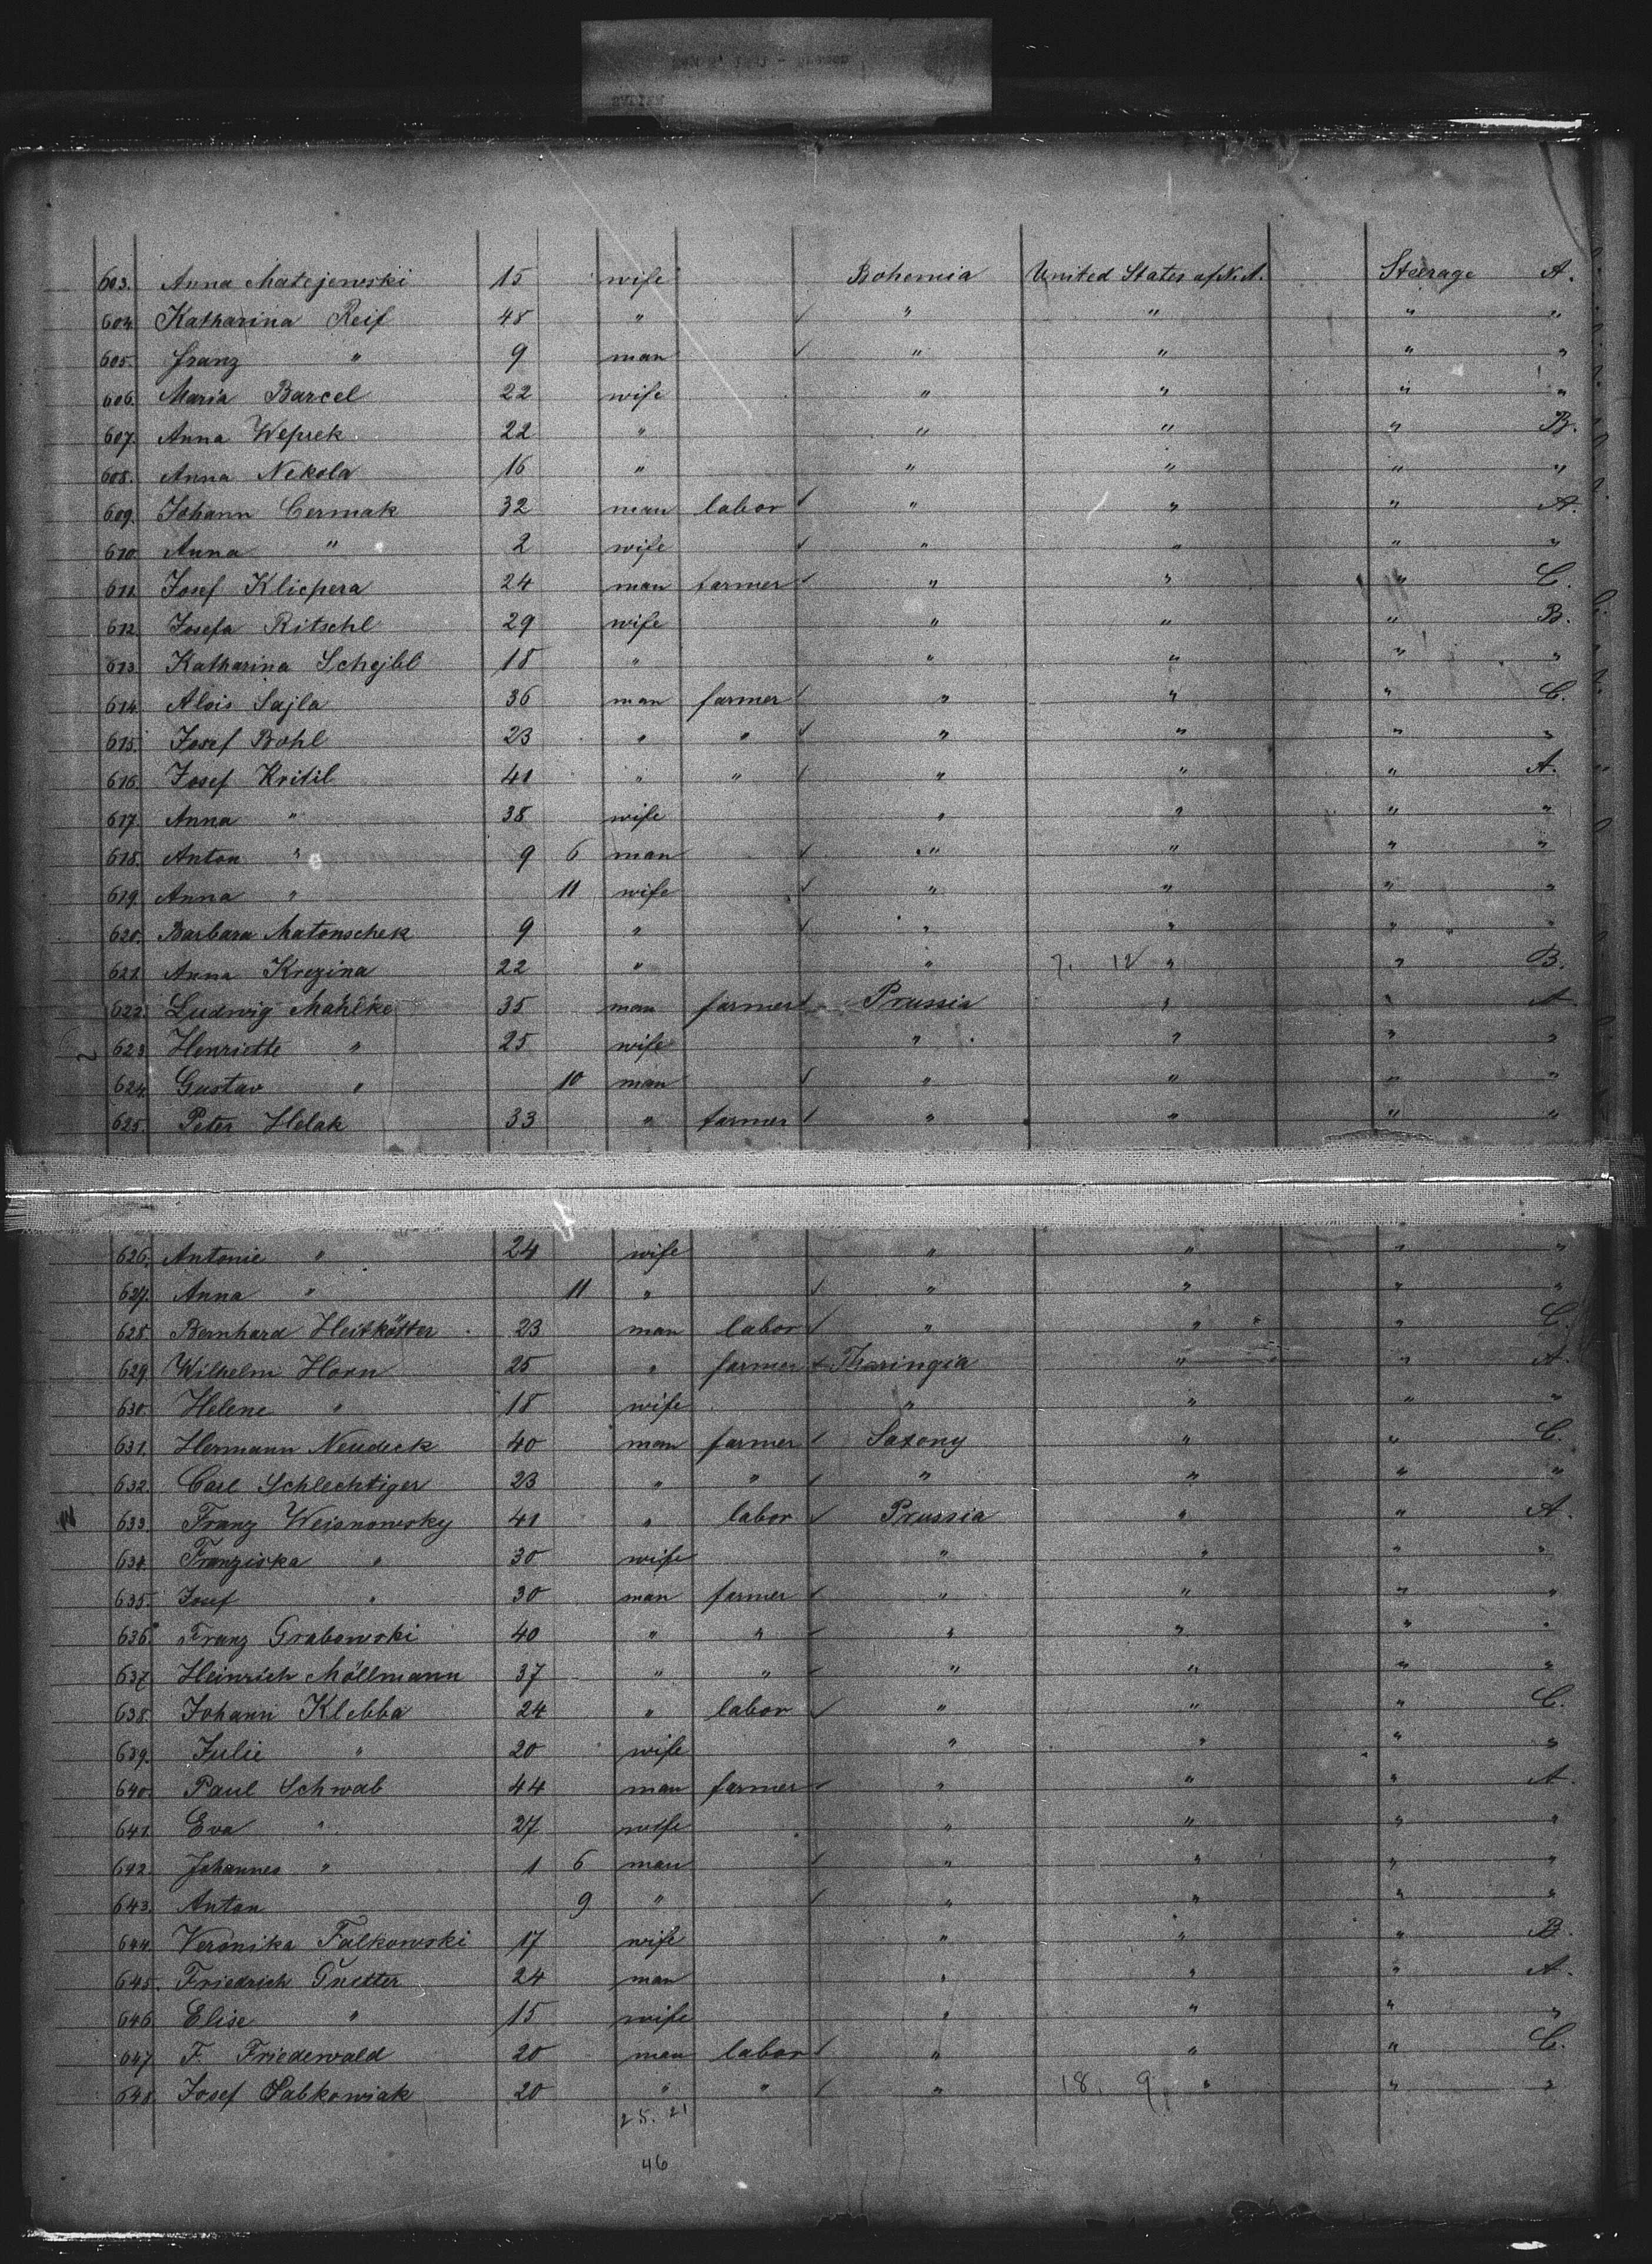 603. Anna Matejewski 15 wife Bohemia United States of N.A. Steerage A.
604. Katharina Reif 48 " " " " "
605. Franz " 9 man " " " "
606. Maria Barcel 22 wife " " " "
607. Anna Weprek 22 " " " " B.
608. Anna Nekola 16 " " " " "
609. Johann Cermak 32 man labor " " " A.
610. Anna " 2 wife " " " "
611. Josef Klicpera 24 man farmer " " " C.
612. Josefa Ritschl 29 wife " " " B.
613. Katharina Schejbl 18 " " " " "
614. Alois Sajla 36 man farmer " " " C.
615. Josef Bohl 23 " " " " " "
616. Josef Kritil 41 " " " " " A.
617. Anna " 38 wife " " " "
618. Anton " 9 6 man " " " "
619. Anna " 11 wife " " " "
620. Barbara Matonschek 9 " " " " "
621. Anna Krezina 22 " " 7. 12 " " B.
622. Ludwig Mahlke 35 man farmer Prussia " " A.
623. Henriette " 25 wife " " " "
624. Gustav " 10 man " " " "
625. Peter Helak 33 " farmer " " " "
626. Antonie " 24 wife " " " "
627. Anna " 11 " " " " "
628. Bernhard Heitkötter 23 man labor " " " C.
629. Wilhelm Horn 25 " farmer Thuringia " " A.
630. Helene " 18 wife " " " "
631. Hermann Neudeck 40 man farmer Saxony " " C.
632. Carl Schlechtiger 23 " " " " " "
633. Franz Weisnowsky 41 " labor Prussia " " A.
634. Franziska " 30 wife " " " "
635. Josef " 30 man farmer " " " "
636. Franz Grabowski 40 " " " " " "
637. Heinrich Möllmann 37 " " " " " "
638. Johann Klebba 24 " labor " " " C.
639. Julie " 20 wife " " " "
640. Paul Schwab 44 man farmer " " " A.
641. Eva " 27 wife " " " "
642. Johannes " 1 6 man " " " "
643. Anton 9 " " " " "
644. Veronika Falkowski 17 wife " " " B.
645. Friedrich 24 man " " " A.
646. Elise " 15 wife " " " "
647. F. Friedewald 20 man labor " " " C.
648. Josef Sabkowiak 20 " " " 18. 9. " " "
25. 21
46